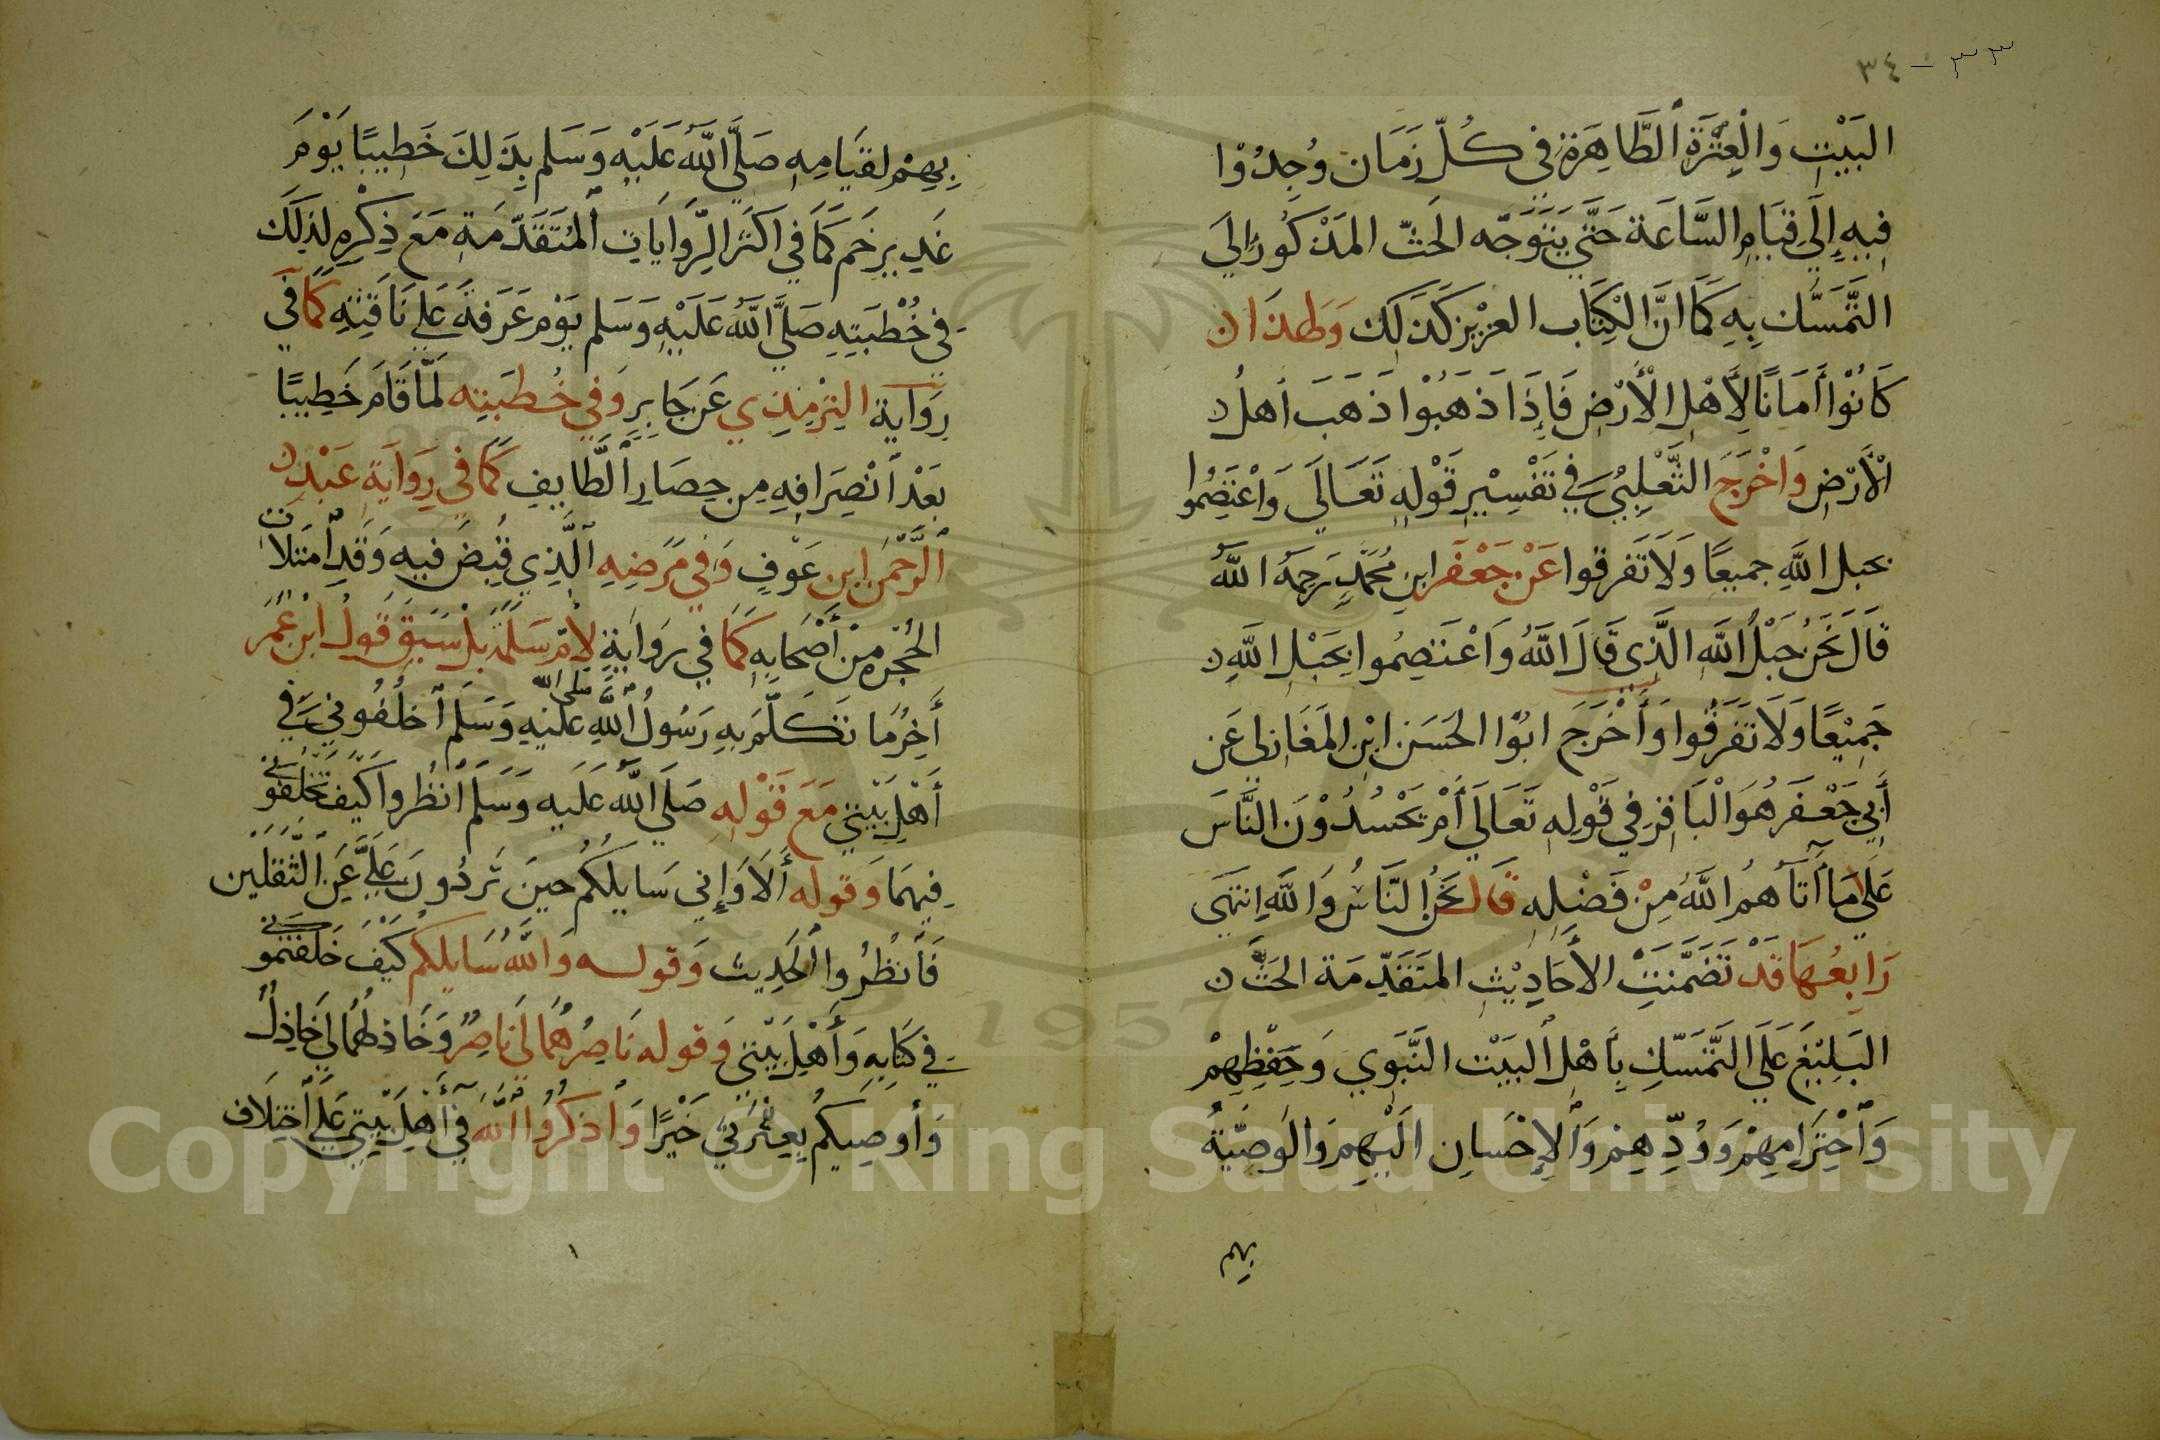 ٣٣ - ٣٤
البَيْتِ وَالْعِتْرَةِ ٱلطَّاهِرَةِ فِي كُلّ زَمَان وُجِدُوْا
فِيهِ إِلَي قِيَامِ السَّاعَة حَتَّي يَتَوَجَّه الحَثّ المَذْكُورُ إلَي
التَّمَسُّك بِهِ كَمَا انَّ الْكِتَاب العزِيْز كَذَلِكَ وَلهذَا ن
كَانُوْا أَمَانًا لِأَهْلِ الْأَرْضِ فَإِذَا ذَهَبُوْا ذَهَبَ أهلُ ن
الْأَرْضِ وَاخْرَجَ الثَّعْلِبِيُّ فِي تَفْسِيْرِ قَوْلِهِ تَعَالَي وَاعْتَصِمُوا
بحبل اللَّهِ جميعًا وَلَا تَفَرقوا عَنْ جَعْفَر ابنِ مُحَمَّدٍ رَحِمَهُ اللَّهُ
قَالَ نَحْنُ حَبْلُ اللَّهِ الَّذِى قَالَ اللَّهُ وَاعْتَصِمُوا بِحَبْلِ اللَّهِ ن
جَمِيْعًا وَلَا تَفَرَقُوا وَأَخْرَجَ ابُوْا الحَسَن ابْنِ المَغَازِلي عَن
أَبِي جَعْفَر هُوَ الْبَاقِر فِي قَوْلِهِ تَعَالَي أَمْ يَحْسُدُوْنَ النَّاسَ
عَلَي مَا آتَاهُمُ اللَّهُ مِنْ فَضْلِهِ قَالَ نَحْنُ النَّاسُ وَاللَّهِ اِنتَهَي
رَابِعُهَا قَدْ تَضَمَّنَتِْ الأَحَادِيْثِ المتَقَدِّمَة الحَثَّ ن
البَلِيْغَ عَلَي التَّمَسُّكِ بِأَهْلِ ٱلبَيْتْ النَّبَوِي وَحِفْظِهِمْ
وَٱحْتِرَامِهِمْ وَوُدِّهِمْ وَٱلإِحْسَانِ اليْهِمْ وَالوَصِيَّةُ
بهم
بِهِمْ لقيَامِهِ صَلَّي اللَّهُ عَلَيْهِ وَسَلم بِذَلِكَ خَطِيبًا يَوْمَ
غَدِيرِ خَم كَمَا فِي اكثَر الرِّوَايَاتِ ٱلمتَقَدّمَةِ مَعَ ذِكْرِهِ لِذَلِكَ
فِي خُطْبَتِهِ صَلَّي اللَّهُ عَلَيْهِ وَسَلم يَوْم عَرَفَةَ عَلَي نَاقَتِهِ كَمَا فِي
رِوَايَة التِرْمِذِي عَن جَابِرِ وَفِي خُطبَتِه لَمَّا قَامَ خَطِيبًا
بَعْدَ ٱنْصِرَافِهِ مِن حِصَارِ ٱلطَّايِفِ كَمَا فِي رِوَايَة عَبْدِ ن
ٱلرَّحْمٰن ابنِ عَوْفٍ وَفِي مَرَضِهِ ٱلَّذِي قُبِضَ فيهِ وَقَدِ ٱمتَلَات
الحُجْره مِنْ أَصْحَابِهِ كَمَا فِي رِوَايَةٍ لِأُمّ سَلَمَة بَلْ سَبَقَ قَولُ ابْنِ عُمَر
أَخِرُ مَا تَكَلَّمَ بِهِ رَسُولُ ٱللَّهِ صلى الله عَلَيْهِ وَسَلَمَ ٱخلُفُونِي فِي
أَهْلِ بَيْتِي مَعَ قَوْلِهِ صَلَّي اللَّهُ عَلَيه وَسَلَمَ ٱنْظُروا كَيْفَ تَخْلُفُونِي
فِيهِمَا وَقوله أَلَا وَإِنِي سَايِلُكُمْ حينَ تَرِدُونَ عَلَيَّ عَنِ ٱلثَّقَلَيْنِ
فَأنظُرُوا ٱلحَدِيث وَقوله وَاللَّهُ سَايِلكُم كَيْفَ خَلَفتُمُونِي
فِي كتَابِهِ وَأَهْلِ بَيْتِي وَقوله نَاصِرُهُمَا لِي نَاصِرٌ وَخَاذِلهُمَا لِي خَاذِلٌ
وَأوصِيكُمْ بِعِتْرَتِي خَيْرًا وَٱذكُرُوا ٱللَّهَ فِي أَهْلِ بَيْتِي عَلَي ٱختِلَاف
١
1957
Copyright © King Saud University